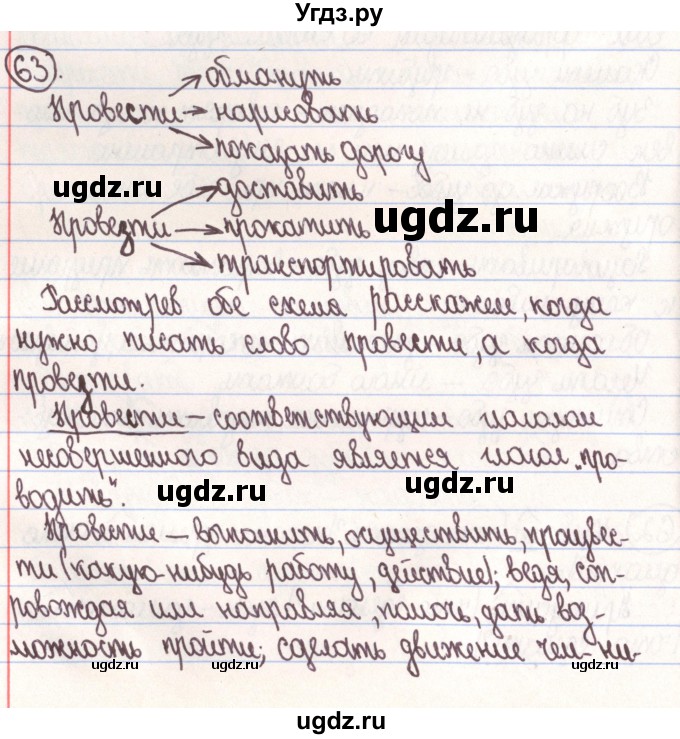 Угдз.ру
63
обмануть
Провести нарисовать
показать дорогу
ugdz.ru ugdz.ru
доставить
ugdz.ru
Провезти прокатить
транспортировать
ugdz.ru ugdz.ru
Рассмотрев обе схема расскажем, когда
нужно писать слово провести, а когда
провезти. ugdz.ru ugdz.ru
Провести – соответствующим глаголом
несовершенного вида является глагол „про-
водить”. ugdz.ru ugdz.ru
Провести – выполнить, осуществить, произвес-
ти (какую-нибудь работу, действие); ведя, соп-
ровождая или направляя, помочь, дать воз-
можность пройти; сделать движение чем-ни-
ugdz.ru ugdz.ru
ugdz.ru